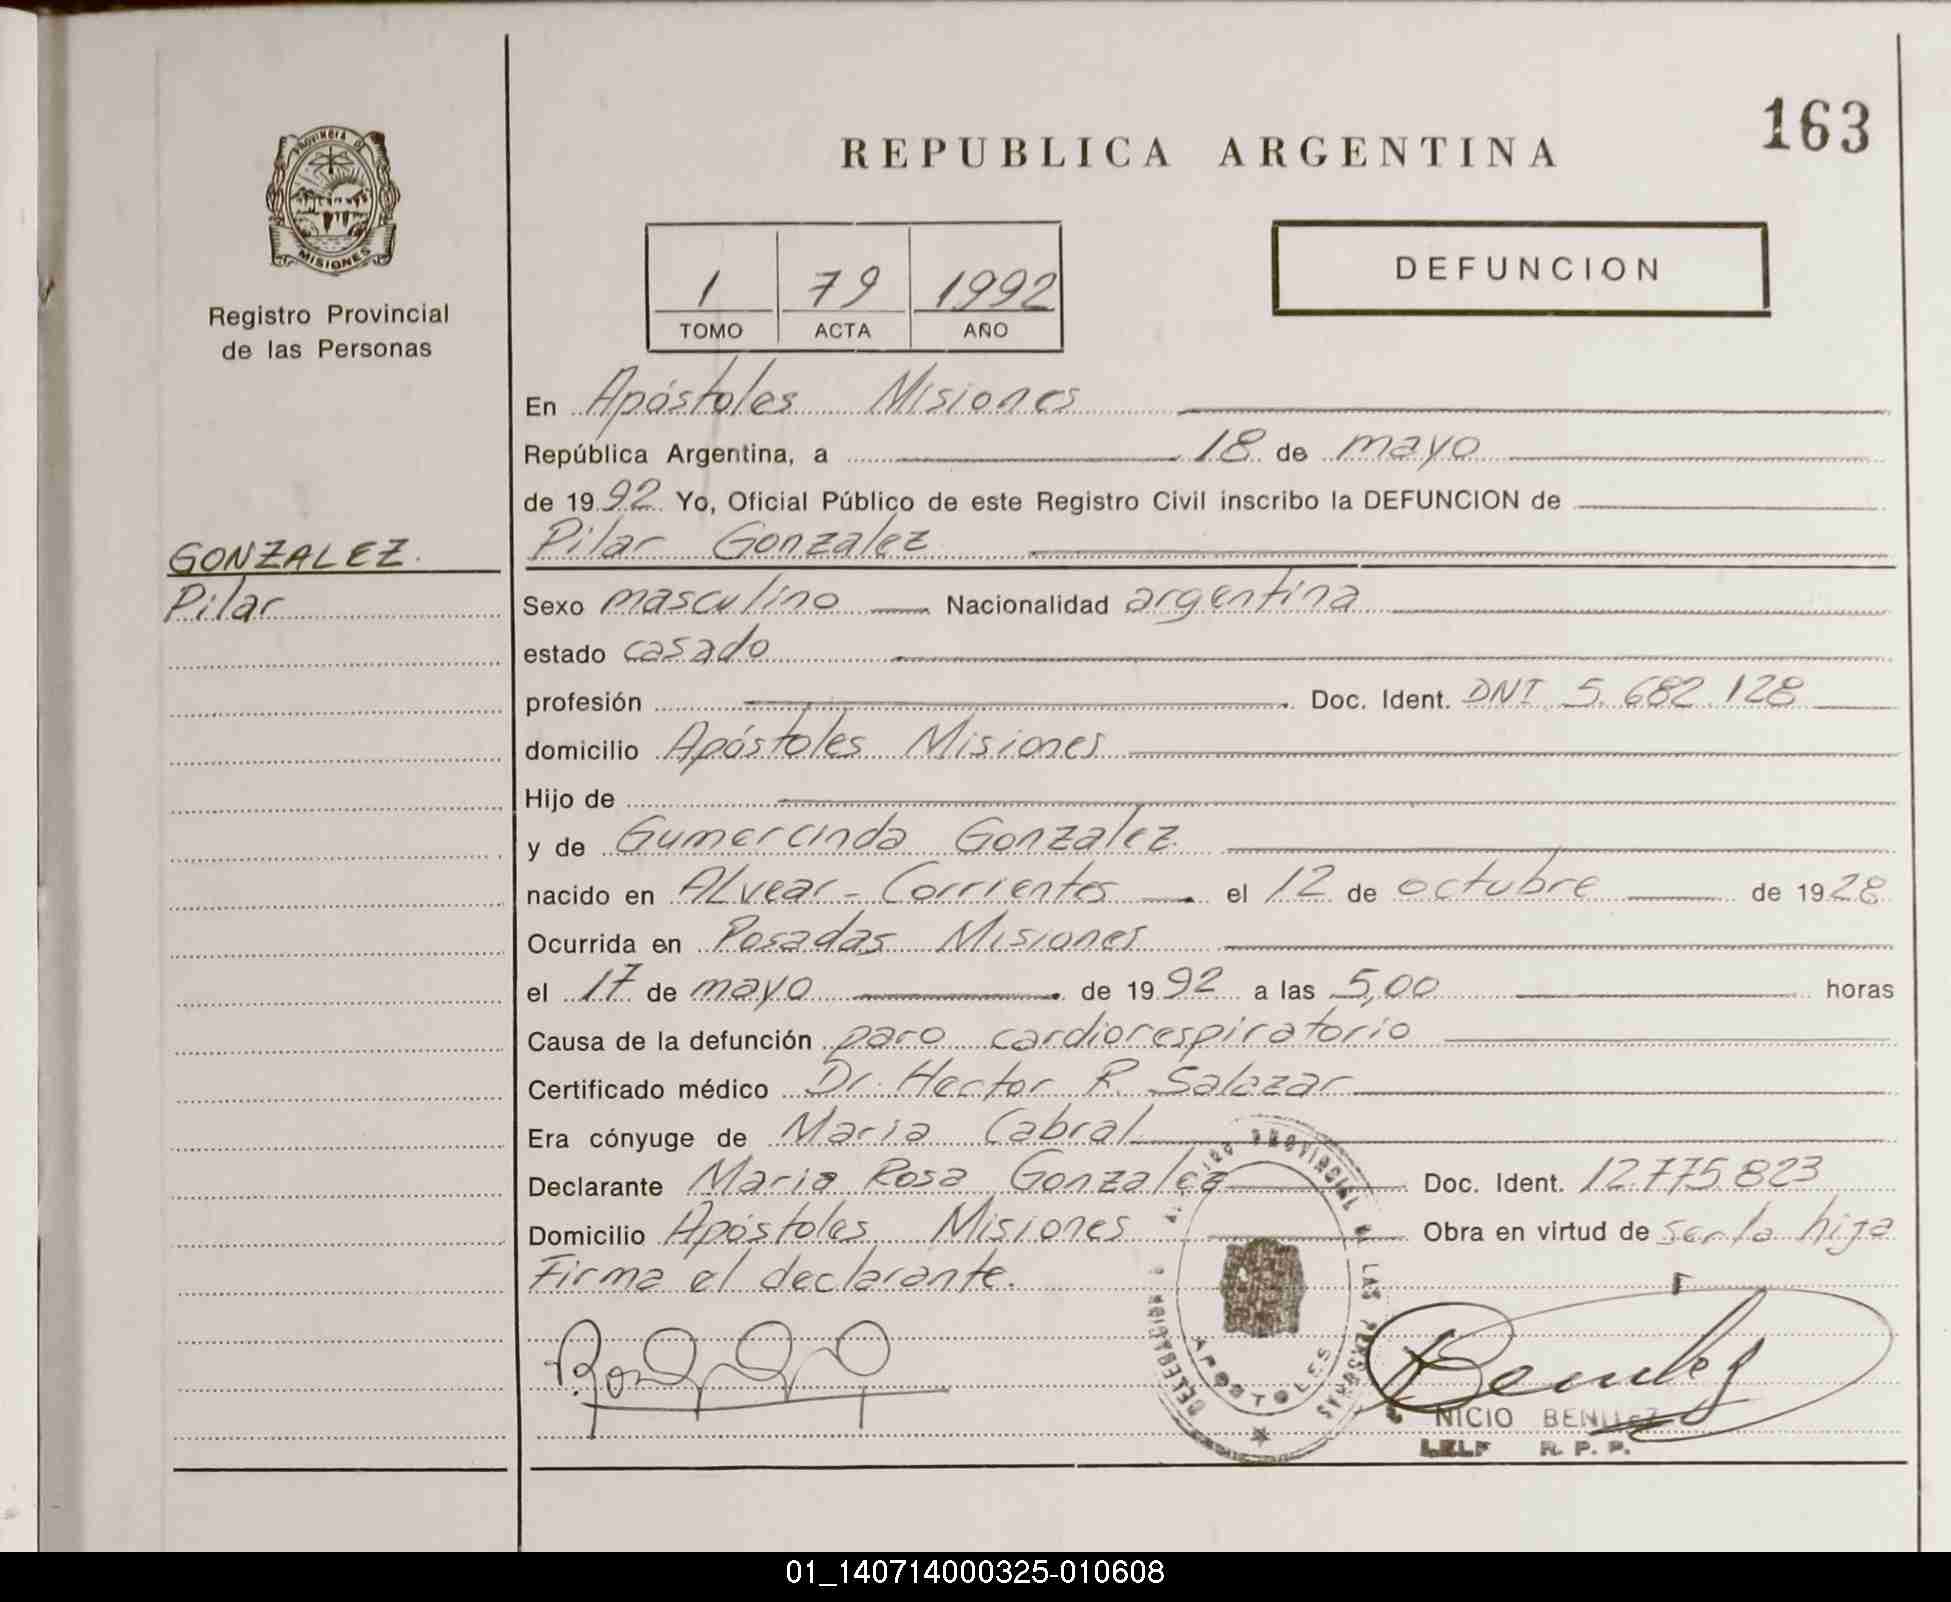 163
REPUBLICA ARGENTINA
PROVINCIA DE
MISIONES
Registro Provincial
de las Personas
1 79 1992
TOMO ACTA AÑO
DEFUNCION
En Apóstoles Misiones
República Argentina, a 18 de mayo
de 1992 Yo, Oficial Público de este Registro Civil inscribo la DEFUNCION de
GONZALEZ.
Pilar
Pilar Gonzalez
Sexo masculino Nacionalidad argentina
estado casado
profesión Doc. Ident. DNI 5.682.128
domicilio Apóstoles Misiones
Hijo de
y de Gumercinda Gonzalez
nacido en Alvear - Corrientes el 12 de octubre de 1928
Ocurrida en Posadas Misiones
el 17 de mayo de 1992 a las 5,00 horas
Causa de la defunción paro cardiorespiratorio
Certificado médico Dr. Hector R. Salazar
Era cónyuge de Maria Cabral
Declarante Maria Rosa Gonzalez Doc. Ident. 12.775.823
Domicilio Apóstoles Misiones Obra en virtud de ser la hija
Firma el declarante.
PROVINCIAL DE LAS PERSONAS
APOSTOLES
Benitez
NICIO BENITEZ
R. P. P.
01_140714000325-010608